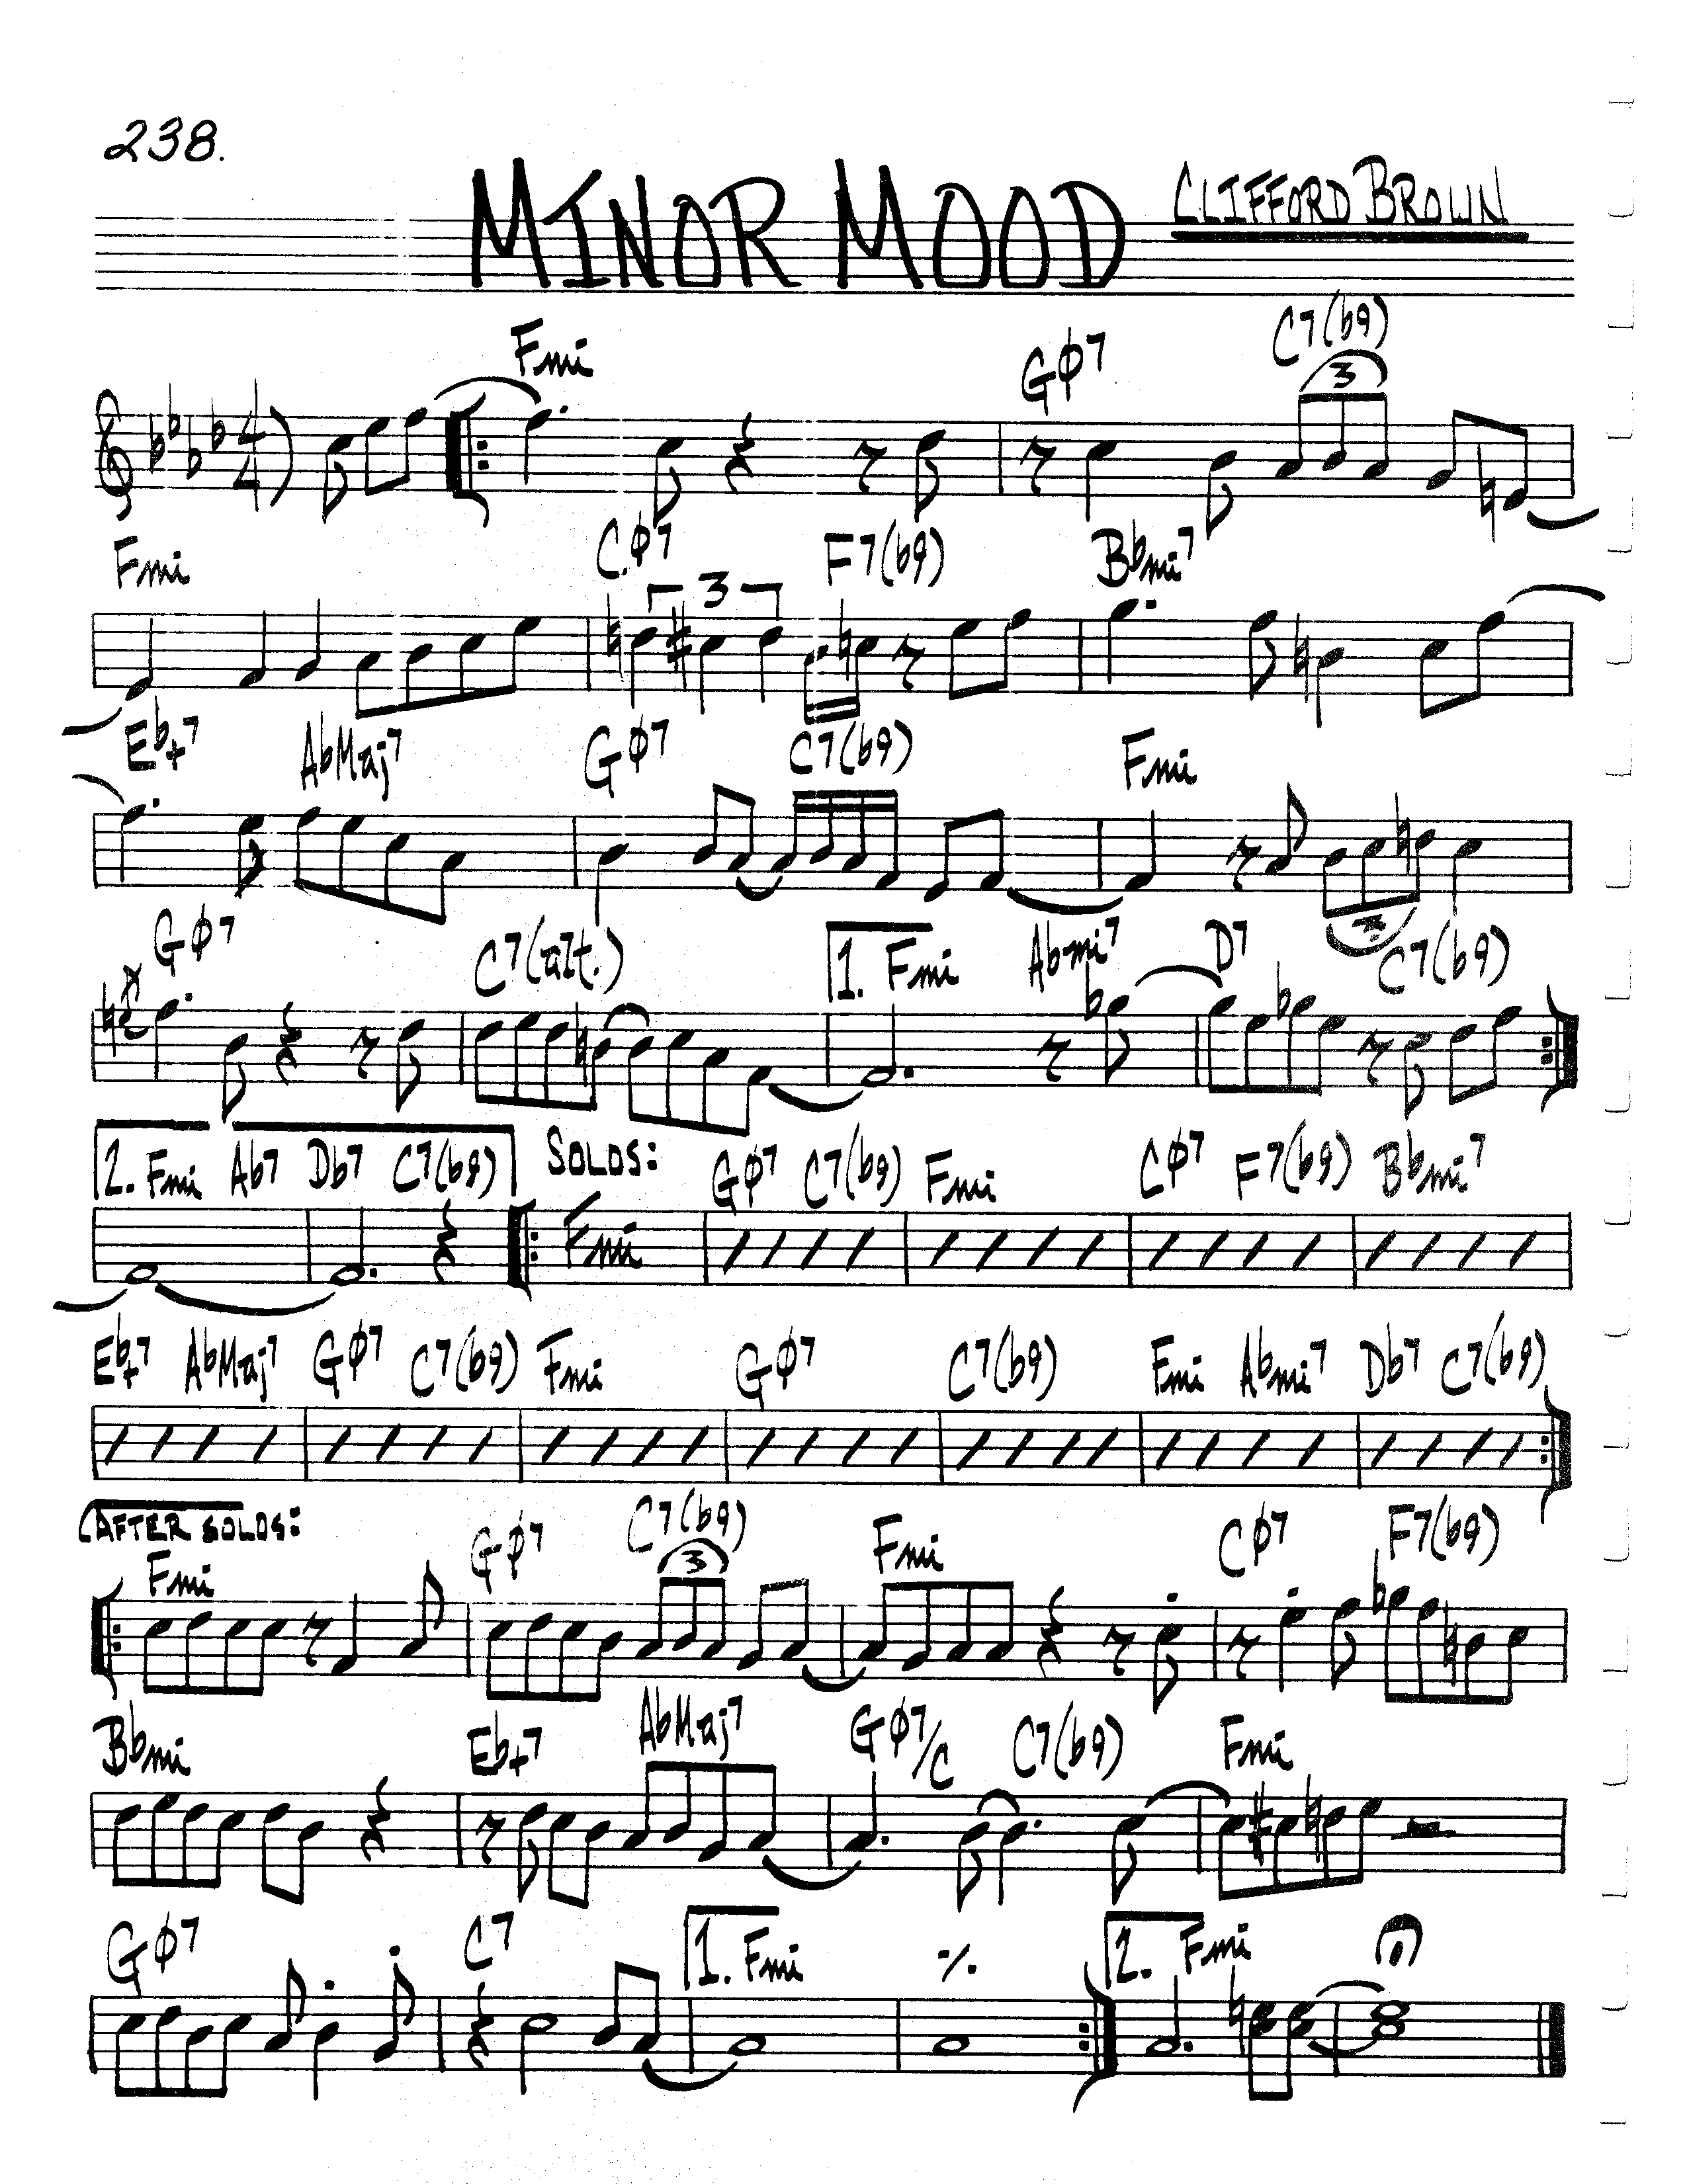 238.
MINOR MOOD
CLIFFORD BROWN
Fmi GØ7 C7(b9)
4 4 3
Fmi CØ7 F7(b9) Bbmi7
3
Eb+7 AbMaj7 GØ7 C7(b9) Fmi
3
GØ7 C7(alt.) 1. Fmi Abmi7 D7 C7(b9)
2. Fmi Ab7 Db7 C7(b9) SOLOS: GØ7 C7(b9) Fmi CØ7 F7(b9) Bbmi7
Fmi
Eb+7 AbMaj7 GØ7 C7(b9) Fmi GØ7 C7(b9) Fmi Abmi7 Db7 C7(b9)
(AFTER SOLOS:
Fmi GØ7 C7(b9) Fmi CØ7 F7(b9)
3
Bbmi Eb+7 AbMaj7 GØ7/C C7(b9) Fmi
GØ7 C7 1. Fmi ٪ 2. Fmi